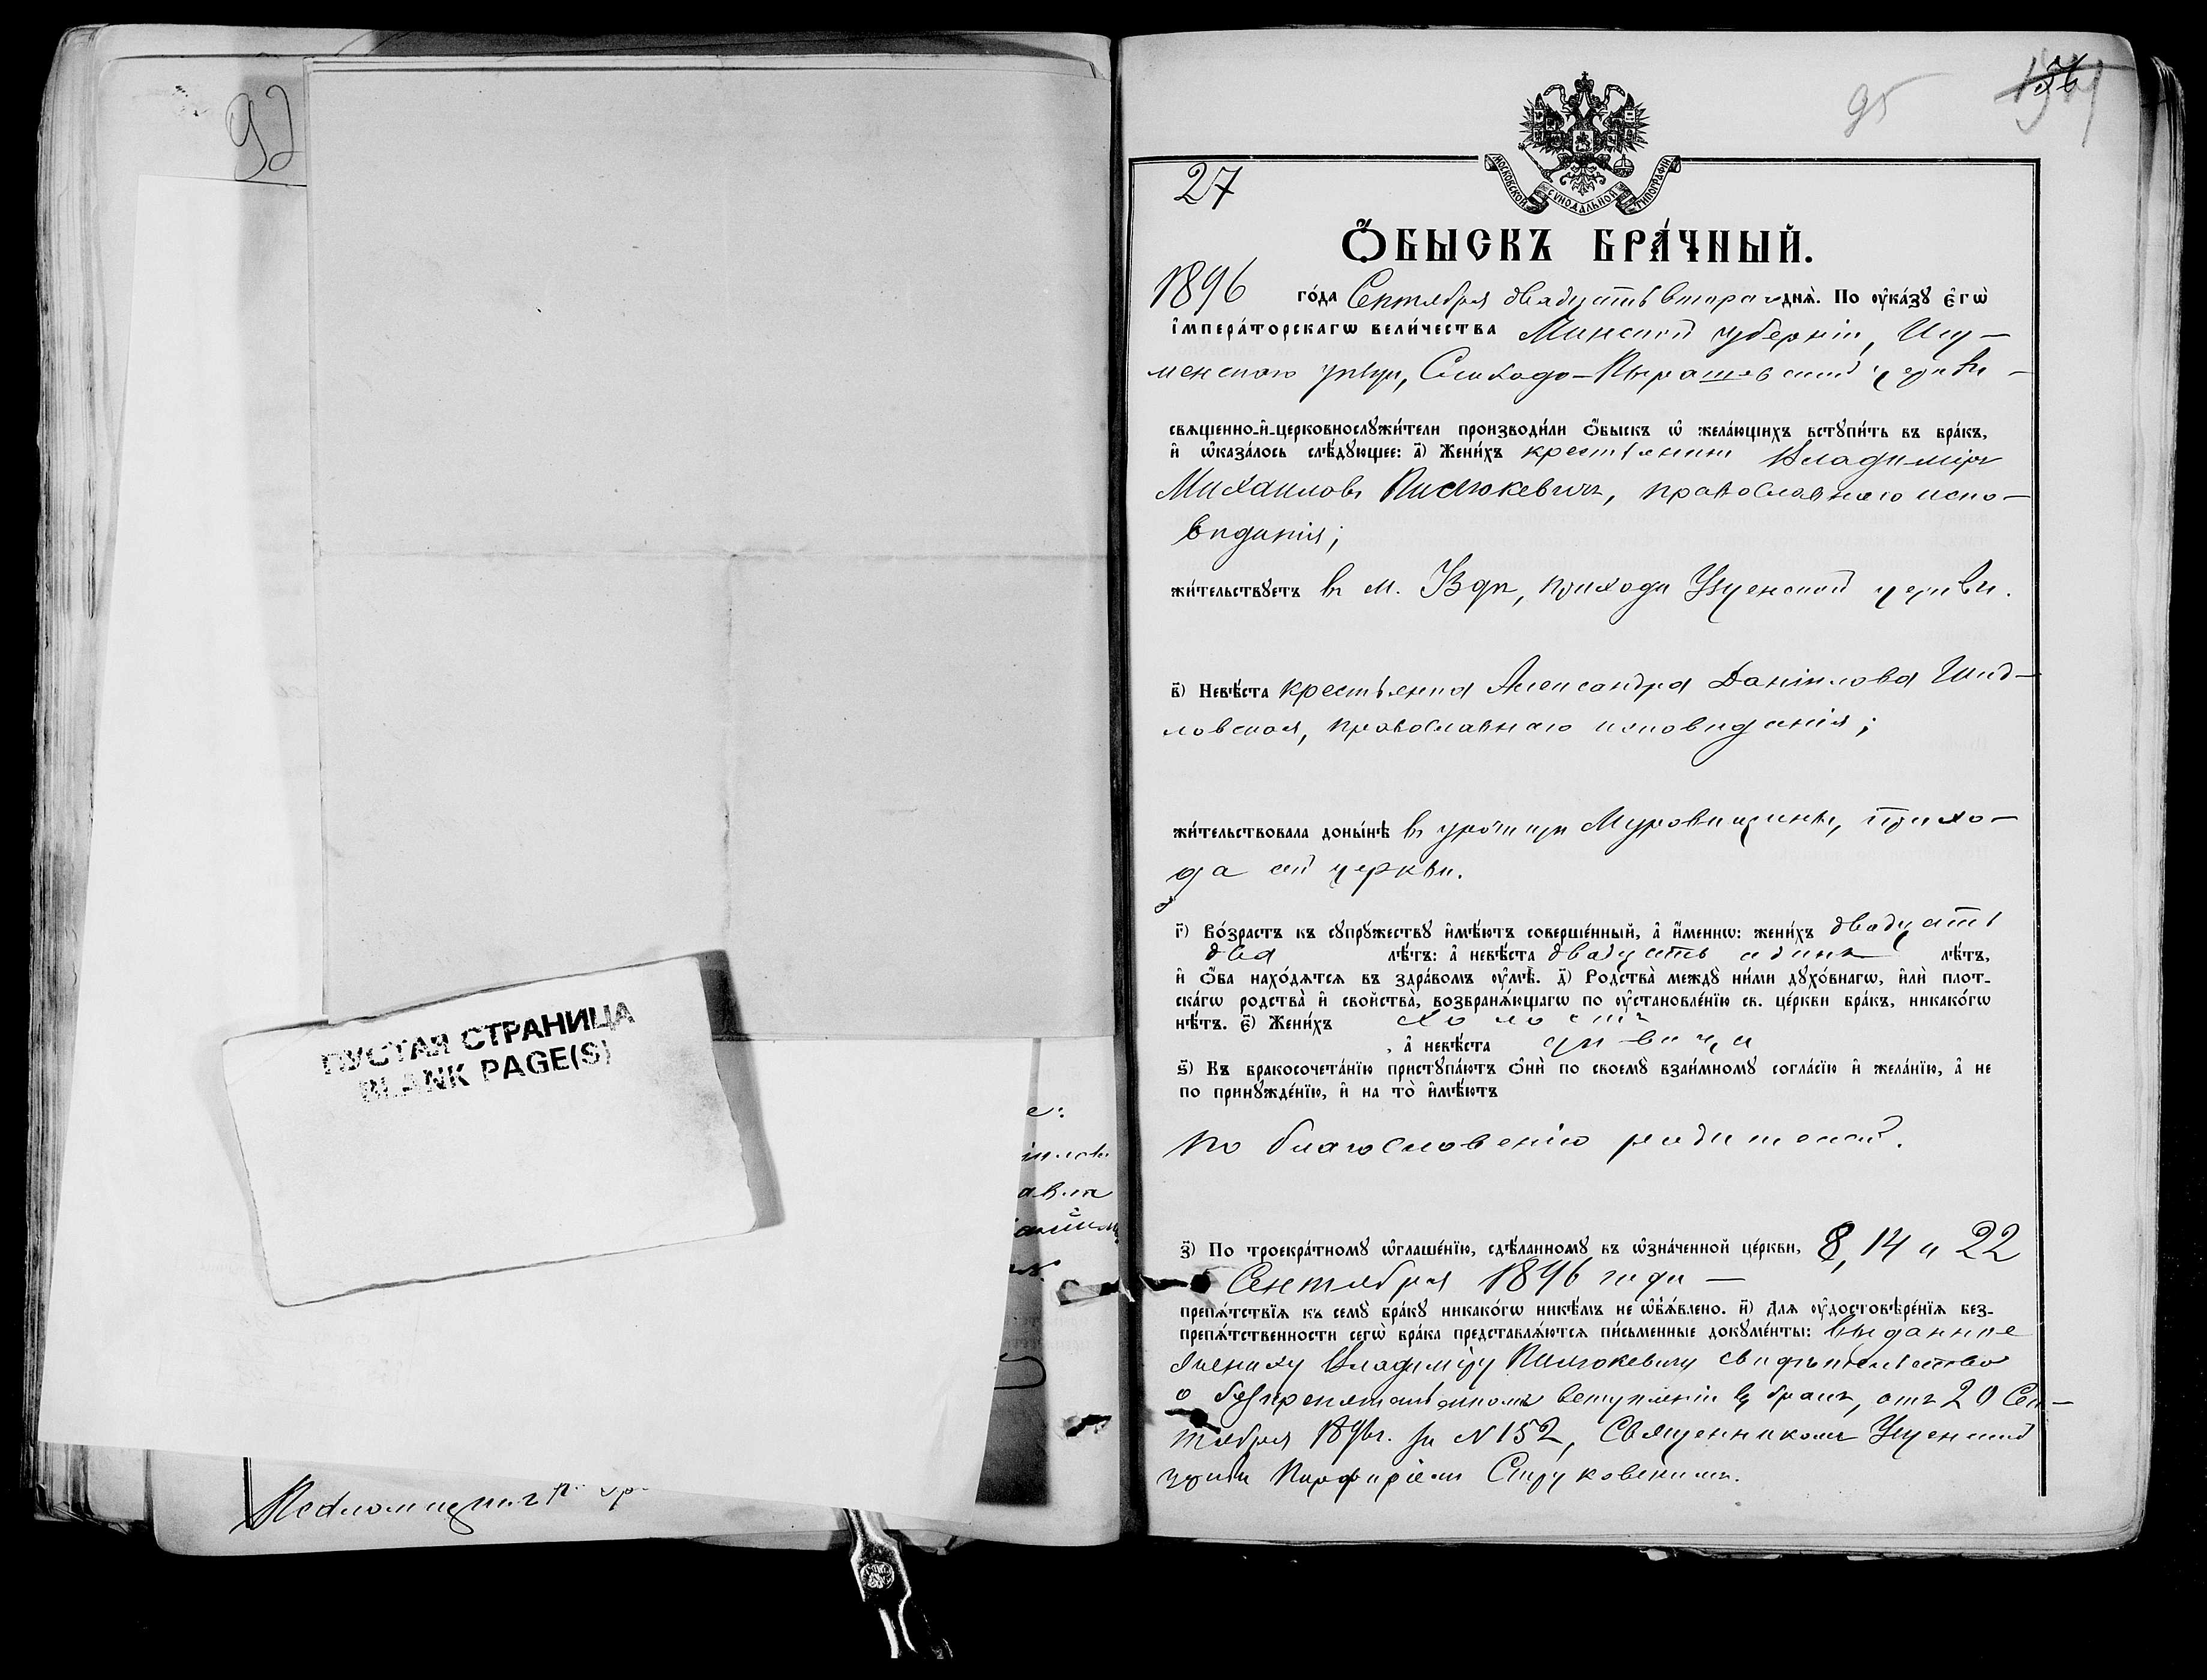 92
ПУСТАЯ СТРАНИЦА
BLANK PAGE(S)
95
МОСКОВСКОЙ СѴНОДАЛЬНОЙ ТИПОГРАФІИ
27
Ѻ҆БЫСКЪ БРА́ЧНЫЙ.
1896 го́да Сентября двадцать втораго днѧ̀. По ᲂу҆ка́зꙋ є҆гѡ̀
і҆мпера́торскагѡ вели́чества Минской губерніи, Игу-
менскаго уѣзда, Слободо-Пырашевской церкви -
свѧще́нно-и҆-церковнослꙋжи́тели производи́ли ѻ҆́быскъ ѡ҆ жела́ющихъ встꙋпи́ть въ бра́къ,
и҆ ѡ҆каза́лось слѣ́дꙋющее: а҃) Жени́хъ крестьянинъ Владиміръ
Михаиловъ Пилюкевичъ, православнаго испо-
вѣданія;
жи́тельствꙋетъ въ м. Уздѣ, прихода Узденской церкви.
в҃) Невѣ́ста крестьянка Александра Даніилова Шид-
ловская, православнаго исповѣданія;
жи́тельствовала доны́нѣ въ урочищѣ Муровищинѣ, прихо-
да сей церкви.
г҃) Во́зрастъ къ сꙋпрꙋ́жествꙋ и҆мѣ́ютъ соверше́нный, а҆ и҆́меннѡ: жени́хъ двадцать
два лѣ́тъ: а҆ невѣ́ста двадцать одинъ лѣ́тъ,
и҆ ѻ҆́ба нахо́дѧтсѧ въ здра́вомъ ᲂу҆мѣ̀. д҃) Родства̀ междꙋ̀ ни́ми дꙋхо́внагѡ, и҆лѝ плот-
ска́гѡ родства̀ и҆ сво́йства, возбранѧ́ющагѡ по ᲂу҆становле́нїю св. це́ркви бра́къ, никако́гѡ
нѣ́тъ. є҃) Жени́хъ холостъ
, а҆ невѣ́ста дѣвица
ѕ҃) Къ бракосочета́нїю пристꙋпа́ютъ ѻ҆нѝ по своемꙋ̀ взаи́мномꙋ согла́сїю и҆ жела́нїю, а҆ не
по принꙋжде́нїю, и҆ на то̀ и҆мѣ́ютъ
по благословенію родителей.
з҃) По троекра́тномꙋ ѡ҆глаше́нїю, сдѣ́ланномꙋ въ ѡ҆зна́ченной це́ркви, 8, 14 и 22
Сентября 1896 года -
препѧ́тствїѧ къ семꙋ̀ бра́кꙋ никако́гѡ никѣ́мъ не ѡ҆б̾ѧ́влено. и҃) Длѧ ᲂу҆достовѣре́нїѧ без-
препѧ́тственности сегѡ̀ бра́ка представлѧ́ютсѧ пи́сьменные докꙋме́нты: выданное
жениху Владиміру Пилюкевичу свидѣтельство
о безпрепятственномъ вступленіи въ бракъ, отъ 20 Сен-
тября 1896 г. за N 152, Священникомъ Узденской
церкви Порфиріемъ